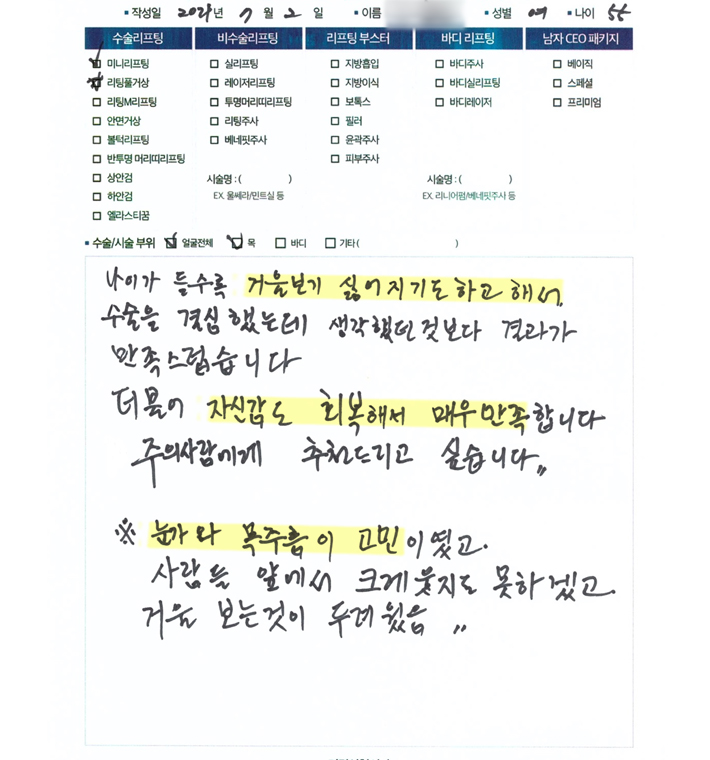 ▪ 작성일 202 년 7 월 2 일 ▪ 이름 ▪ 성별 여 ▪ 나이 55
수술리프팅 비수술리프팅 리프팅 부스터 바디 리프팅 남자 CEO 패키지
미니리프팅 실리프팅 지방흡입 바디주사 베이직
리팅풀거상 레이저리프팅 지방이식 바디실리프팅 스페셜
리팅M리프팅 투명머리띠리프팅 보톡스 바디레이저 프리미엄
안면거상 리팅주사 필러
볼턱리프팅 베네핏주사 윤곽주사
반투명 머리띠리프팅 피부주사
상안검 시술명 : ( ) 시술명 : ( )
하안검 EX. 울쎄라/민트실 등 EX. 리니어펌/베네핏주사 등
엘라스티꿈
▪ 수술/시술 부위 얼굴전체 목 바디 기타 ( )
나이가 들수록 거울보기 싫어지기도하고 해서
수술을 결심했는데 생각했던것보다 결과가
만족스럽습니다
더불어 자신감도 회복해서 매우만족합니다
주의사람에게 추천드리고 싶습니다〃
※ 눈가와 목주름이 고민이였고.
사람들 앞에서 크게웃지도 못하겠고.
거울 보는것이 두려웠음 〃